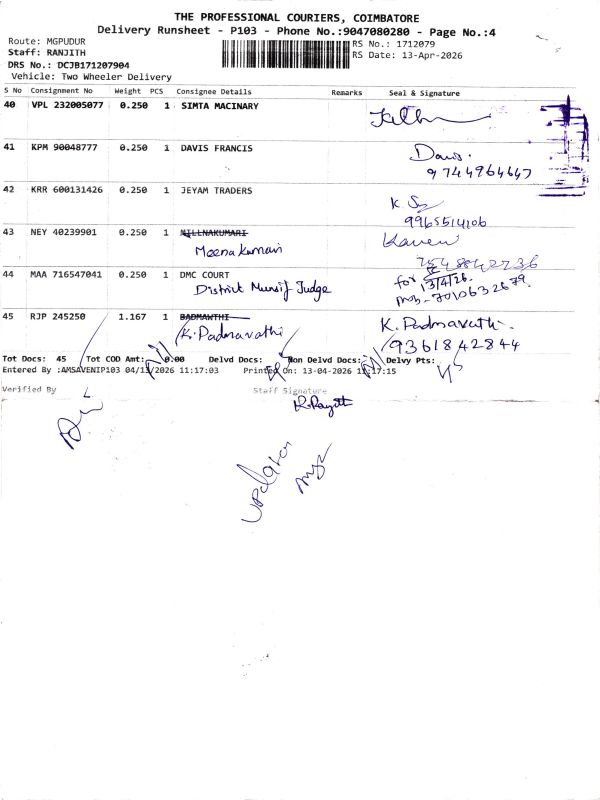 THE PROFESSIONAL COURIERS, COIMBATORE
Delivery Runsheet - P103 - Phone No.:9047080280 - Page No.:4
Route: MGPUDUR
RS No.: 1712079
Staff: RANJITH
RS Date: 13-Apr-2026
DRS No.: DCJB171207904
Vehicle: Two Wheeler Delivery
S No Consignment No Weight PCS Consignee Details Remarks Seal & Signature
40 VPL 232005077 0.250 1 SIMTA MACINARY
41 KPM 90048777 0.250 1 DAVIS FRANCIS Davis.
9744964647
42 KRR 600131426 0.250 1 JEYAM TRADERS
9965514106
43 NEY 40239901 0.250 1
Meena kumari
44 MAA 716547041 0.250 1 DMC COURT for
District Munsif Judge 13/4/26.
mob-7010632679.
45 RJP 245250 1.167 1 BADMAWTHI K. Padmavathi
K. Padmavathi 9361842844
Tot Docs: 45 Tot COD Amt: 0.00 Delvd Docs: Non Delvd Docs: Delvy Pts:
Entered By :AMSAVENIP103 04/13/2026 11:17:03 Printed On: 13-04-2026 11:17:15
Verified By Staff Signature